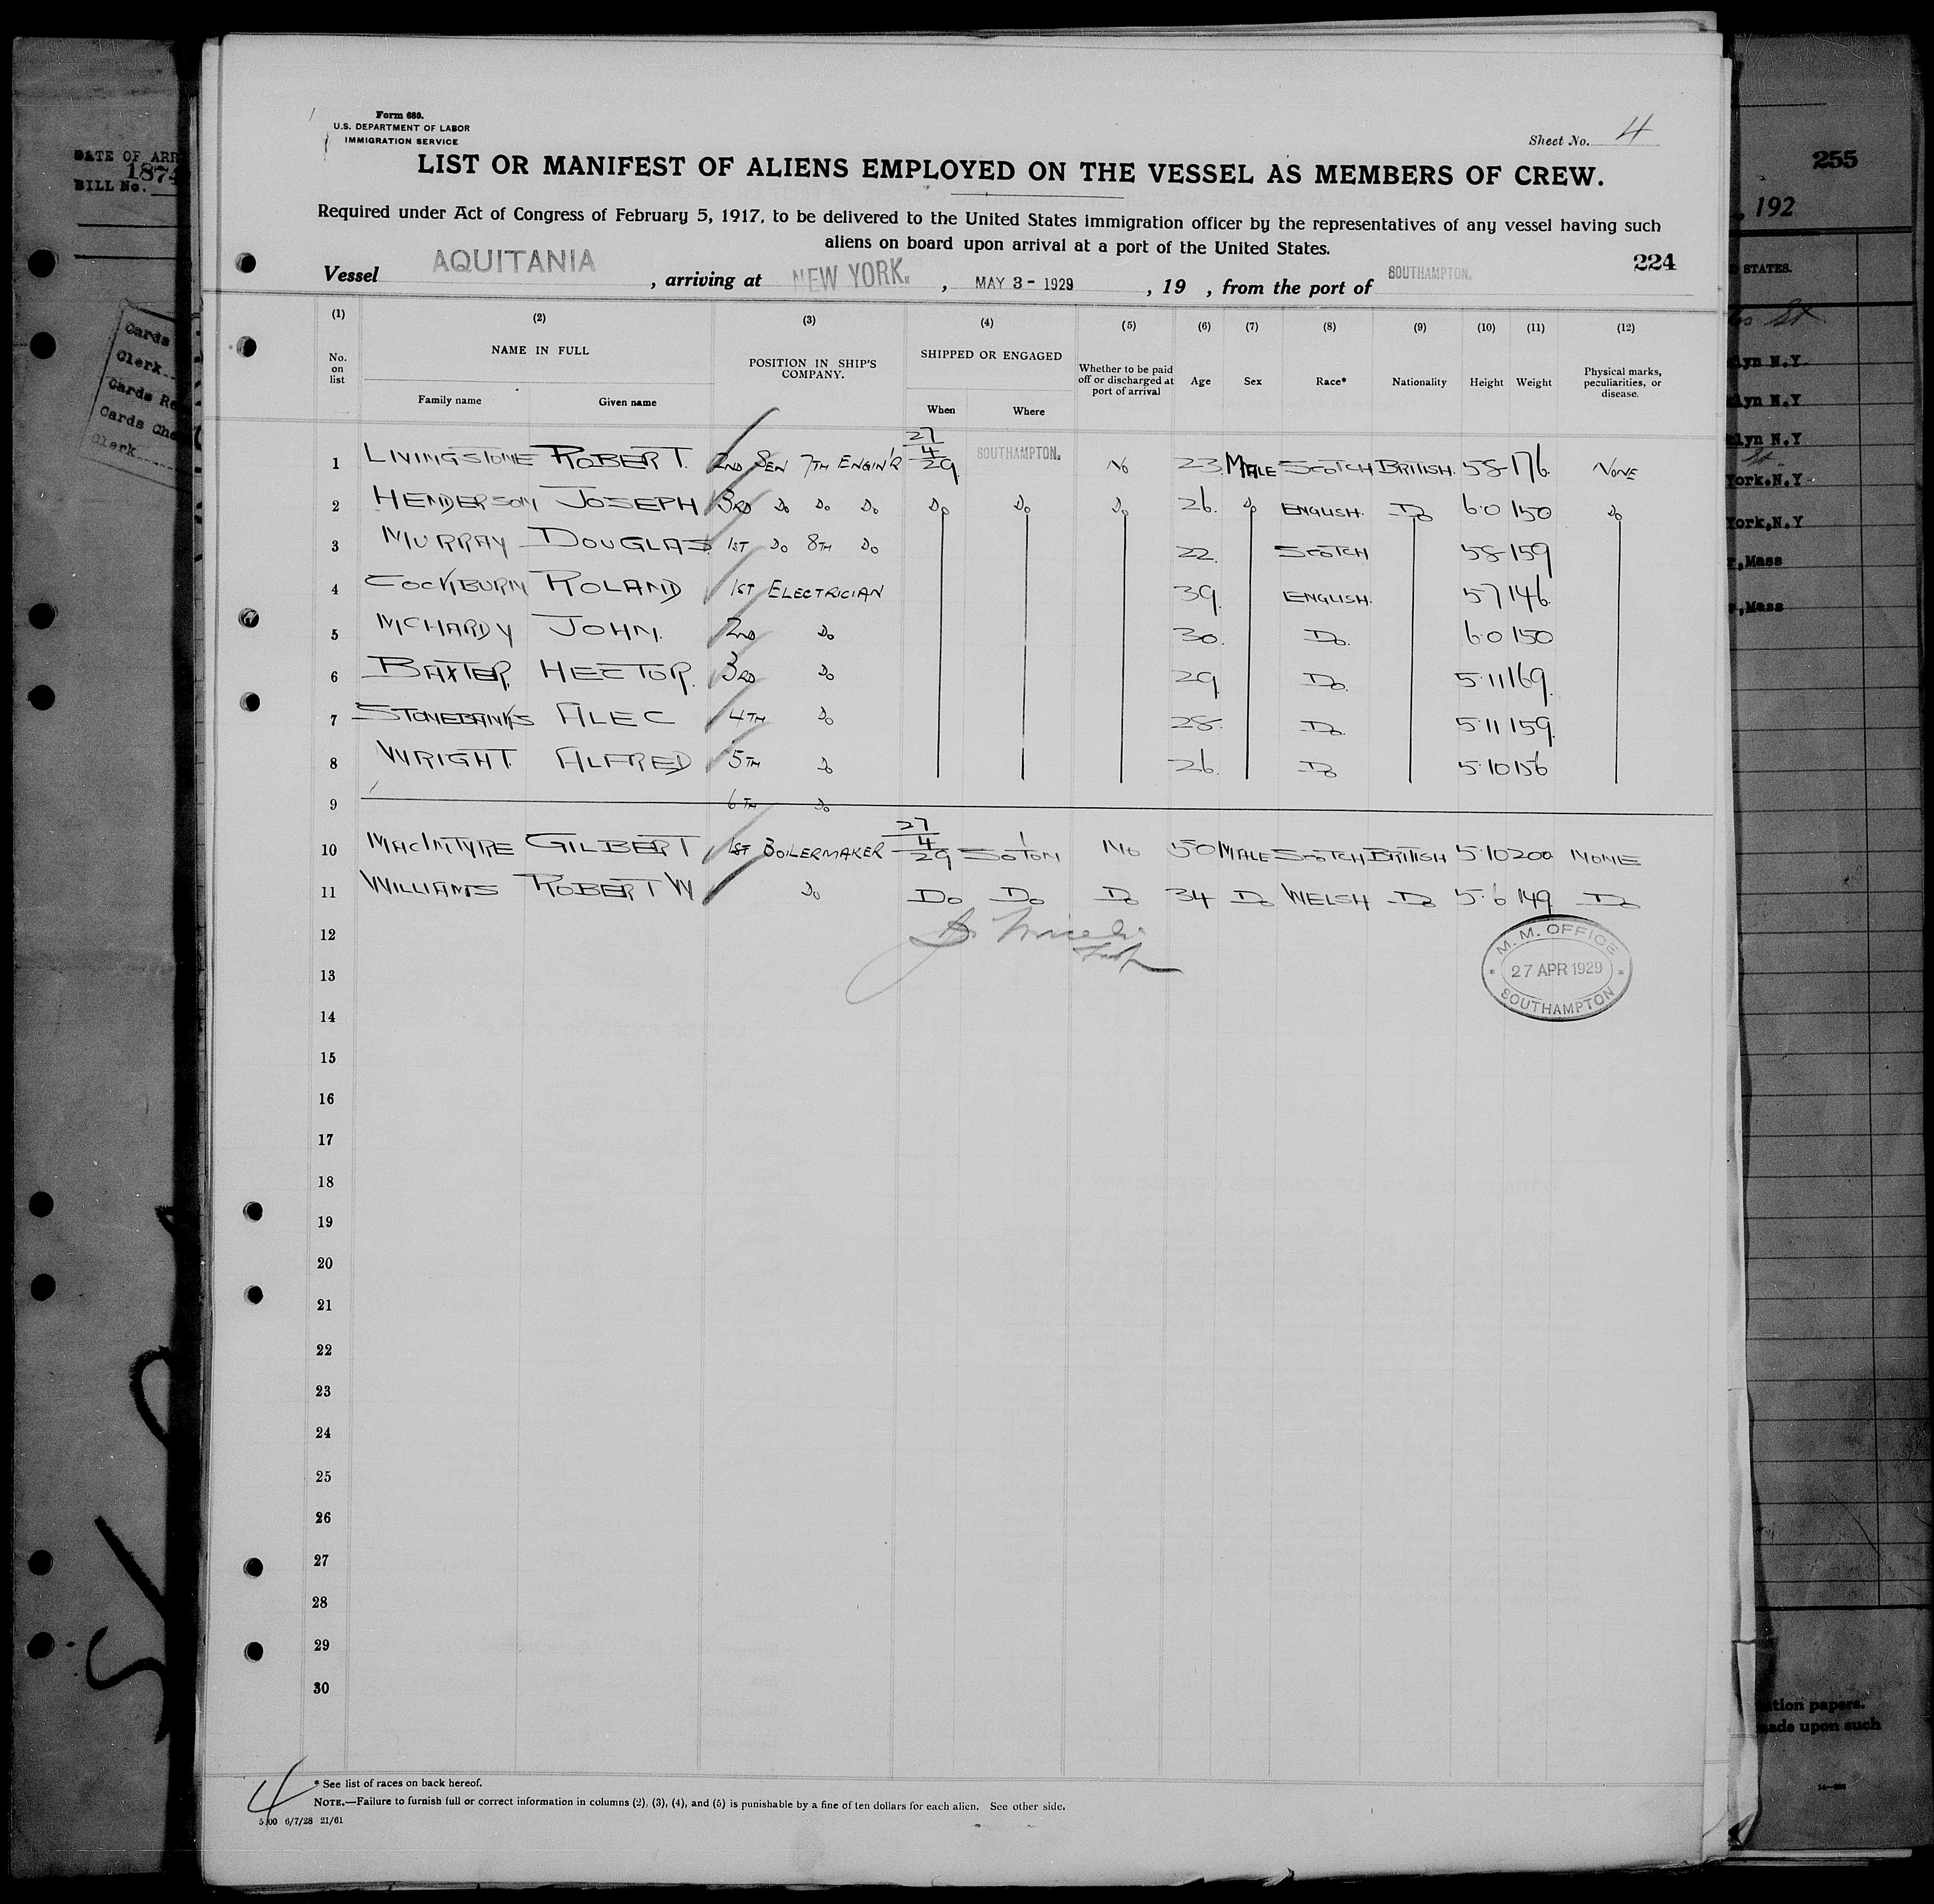 Form 680.
U.S. DEPARTMENT OF LABOR
IMMIGRATION SERVICE
Sheet No. 4
LIST OR MANIFEST OF ALIENS EMPLOYED ON THE VESSEL AS MEMBERS OF CREW.
Required under Act of Congress of February 5, 1917, to be delivered to the United States immigration officer by the representatives of any vessel having such
aliens on board upon arrival at a port of the United States.
224
Vessel AQUITANIA, arriving at NEW YORK., MAY 3 - 1929, 19 , from the port of SOUTHAMPTON.
(1) (2) (3) (4) (5) (6) (7) (8) (9) (10) (11) (12)
No. on list NAME IN FULL POSITION IN SHIP'S COMPANY. SHIPPED OR ENGAGED Whether to be paid off or discharged at port of arrival Age Sex Race* Nationality Height Weight Physical marks, peculiarities, or disease.
Family name Given name When Where
1 LIVINGSTONE ROBERT. 2ND SEN 7TH ENGIN'R 27/4/29 SOUTHAMPTON. NO 23 MALE SCOTCH BRITISH. 5·8 176 NONE
2 HENDERSON JOSEPH 3RD DO DO DO DO DO DO 26. DO ENGLISH. DO 6·0 150 DO
3 MURRAY DOUGLAS 1ST DO 8TH DO 22 SCOTCH 5·8 159
4 COCKBURN ROLAND 1ST ELECTRICIAN 39. ENGLISH. 5·7 146
5 MCHARDY JOHN. 2ND DO 30. DO. 6·0 150
6 BAXTER. HECTOR. 3RD DO 29. DO. 5·11 169.
7 STONEBANKS ALEC 4TH DO 28. DO. 5·11 159.
8 WRIGHT. ALFRED 5TH DO 26. DO 5·10 156
9 6TH DO
10 MACINTYRE GILBERT 1ST BOILERMAKER 27/4/29 SO'TON NO 50 MALE SCOTCH BRITISH 5·10 200 NONE
11 WILLIAMS ROBERT W DO DO DO DO 34 DO WELSH DO 5·6 149. DO
12
13
M. M. OFFICE
27 APR 1929
SOUTHAMPTON
14
15
16
17
18
19
20
21
22
23
24
25
26
27
28
29
30
* See list of races on back hereof.
NOTE.—Failure to furnish full or correct information in columns (2), (3), (4), and (5) is punishable by a fine of ten dollars for each alien. See other side.
4
6/7/28 21/61
DATE OF ARR
1874
BILL No.
Cards
Clerk
Cards Re
Cards Che
Clerk
255
, 192
STATES.
lyn N.Y
lyn N.Y
lyn N.Y
York.N.Y
York,N.Y
,Mass
,Mass
tion papers.
ade upon such